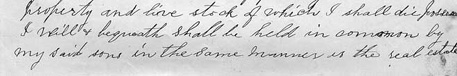 property and live stock of which I shall die possess
I will & bequeath shall be held in common by
my said sons in the same manner is the real estate